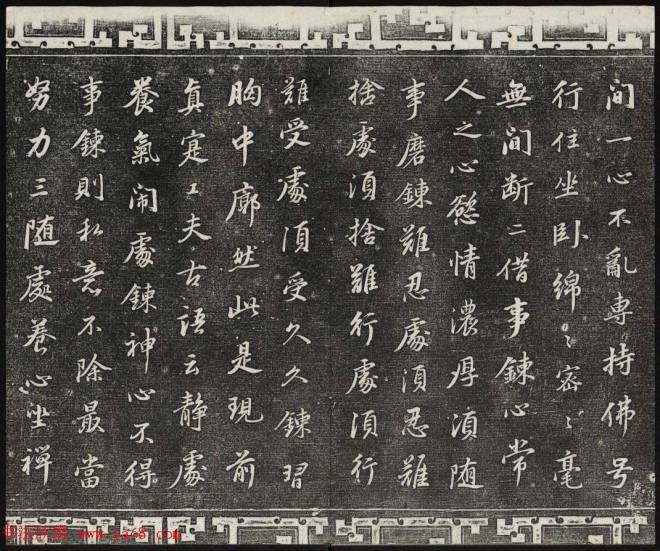 间一心不亂專持佛号
行住坐卧綿〻密〻毫
無间断二借事鍊心常
人之心慾情濃厚須随
事磨鍊難忍處須忍難
捨處須捨難行處須行
難受處須受久久鍊習
胸中廓然此是現前
真寔工夫古語云静處
養氣闹處鍊神心不得
事鍊則私意不除最當
努力三随處养心坐禅